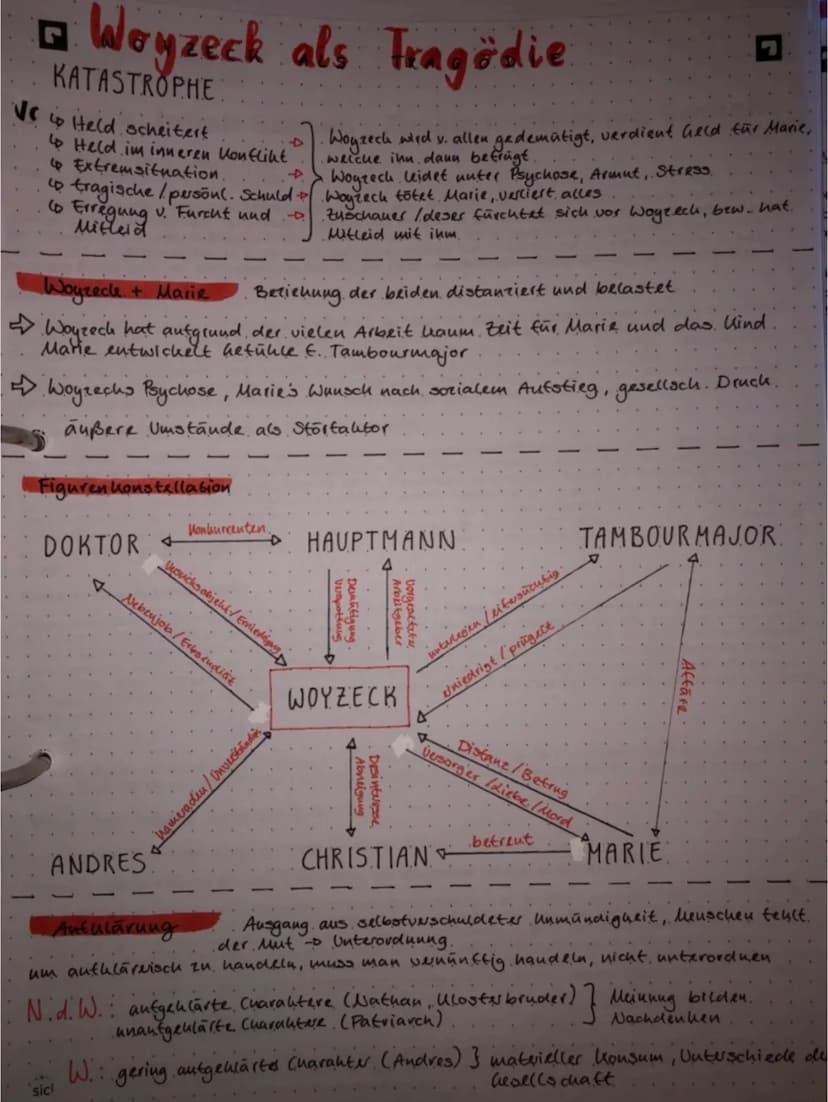 Woyzeck als Tragödie
KATASTROPHE
↳ Held scheitert
↳ Held im inneren Konflikt
↳ Extremsituation
↳ tragische/persönl. Schuld
↳ Erregung v. Furcht und
Mitleid
Woyzeck wird v. allen gedemütigt, verdient Geld für Marie,
welche ihn dann betrügt
Woyzeck leidet unter Psychose, Armut, Stress
Woyzeck tötet Marie, verliert alles
Zuschauer/Leser fürchtet sich vor Woyzeck, bzw. hat
Mitleid mit ihm
Woyzeck + Marie Beziehung der beiden distanziert und belastet
⇨ Woyzeck hat aufgrund der vielen Arbeit kaum Zeit für Marie und das Kind
Marie entwickelt Gefühle f. Tambourmajor
⇨ Woyzecks Psychose, Marie's Wunsch nach sozialem Aufstieg, gesellsch. Druck
äußere Umstände als Störfaktor
Figurenkonstellation
DOKTOR
Konkurrenten
HAUPTMANN
TAMBOURMAJOR
Versuchsobjekt/Erniedrigung
Nebenjob/Erbsendiät
Demütigung
Verspottung
Vorgesetzter
Arbeitgeber
unterlegen/eifersüchtig
erniedrigt/prügelt
Affäre
WOYZECK
Kameraden/Unverständnis
Desinteresse
Abneigung
Distanz/Betrug
Versorger/Liebe/Mord
ANDRES
CHRISTIAN
betreut
MARIE
Aufklärung Ausgang aus selbstverschuldeter Unmündigkeit, Menschen fehlt
der Mut → Unterordnung
um aufklärerisch zu handeln, muss man vernünftig handeln, nicht unterordnen
N.d.W.: aufgeklärte Charaktere (Nathan, Klosterbruder) } Meinung bilden
unaufgeklärte Charaktere (Patriarch) Nachdenken
W.: gering aufgeklärter Charakter (Andres) } materieller Konsum, Unterschiede de
Gesellschaft
sicl